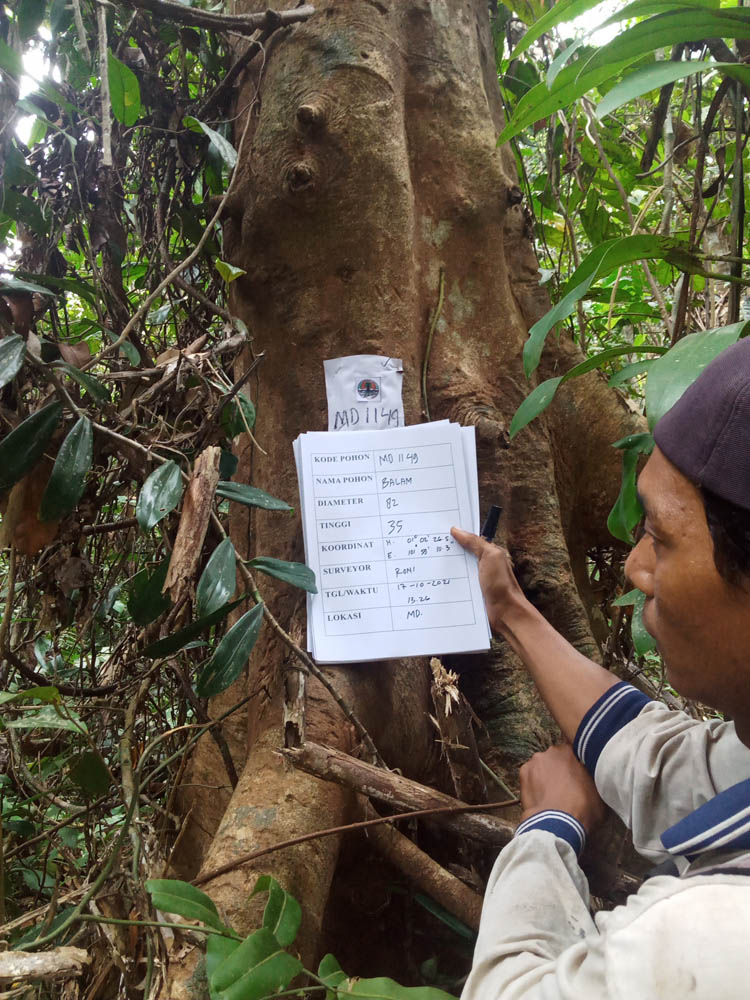 MD 1149
KODE POHON MD 1149
NAMA POHON BALAM
DIAMETER 82
TINGGI 35
KOORDINAT N. 01° 02' 26.5
E. 101° 59' 10.3"
SURVEYOR RONI
TGL/WAKTU 17-10-2021
13.26
LOKASI MD.